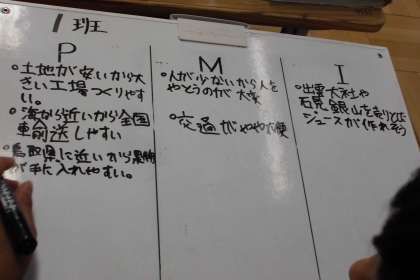 1班
P
・土地が安いから大
きい工場つくりやす
い。
・海から近いから全国
車前送しやすい
・鳥取県に近いから果物
が手に入れやすい。
M
・人が少ないから人を
やとうのが大変
・交通がやや不便
I
・出雲大社や
石見銀山を
ジュースが作れそう